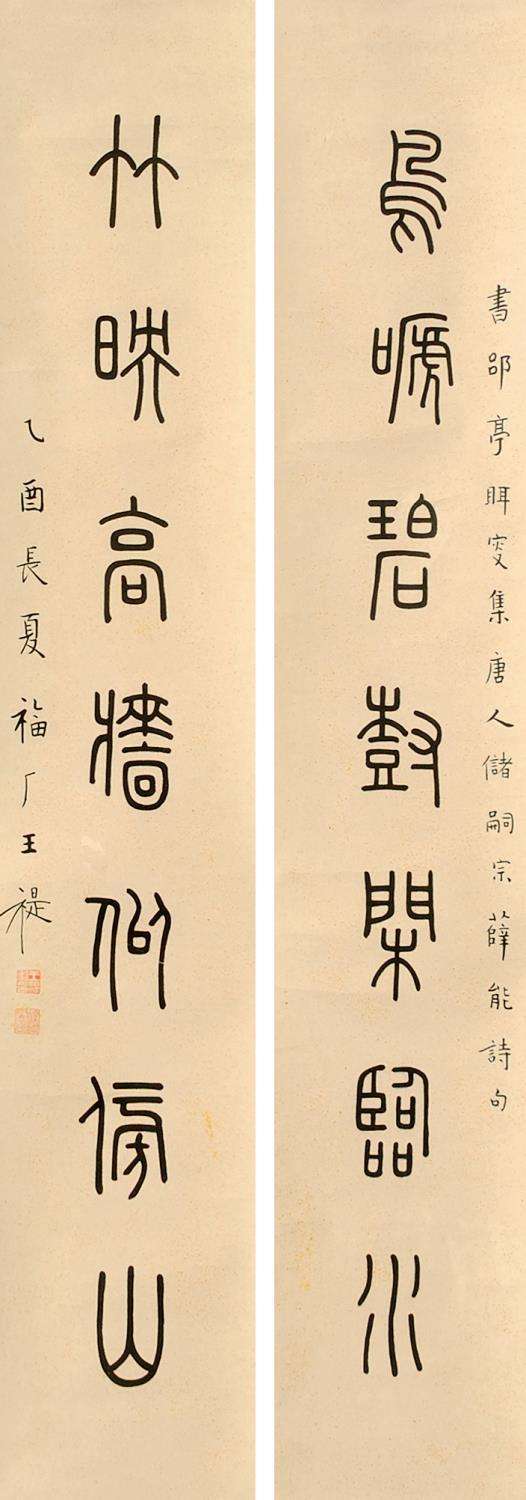 書郘亭眲叜集唐人儲嗣宗薛能詩句
鳥嗁碧樹閑臨水
竹映高牆似傍山
乙酉長夏福厂王禔